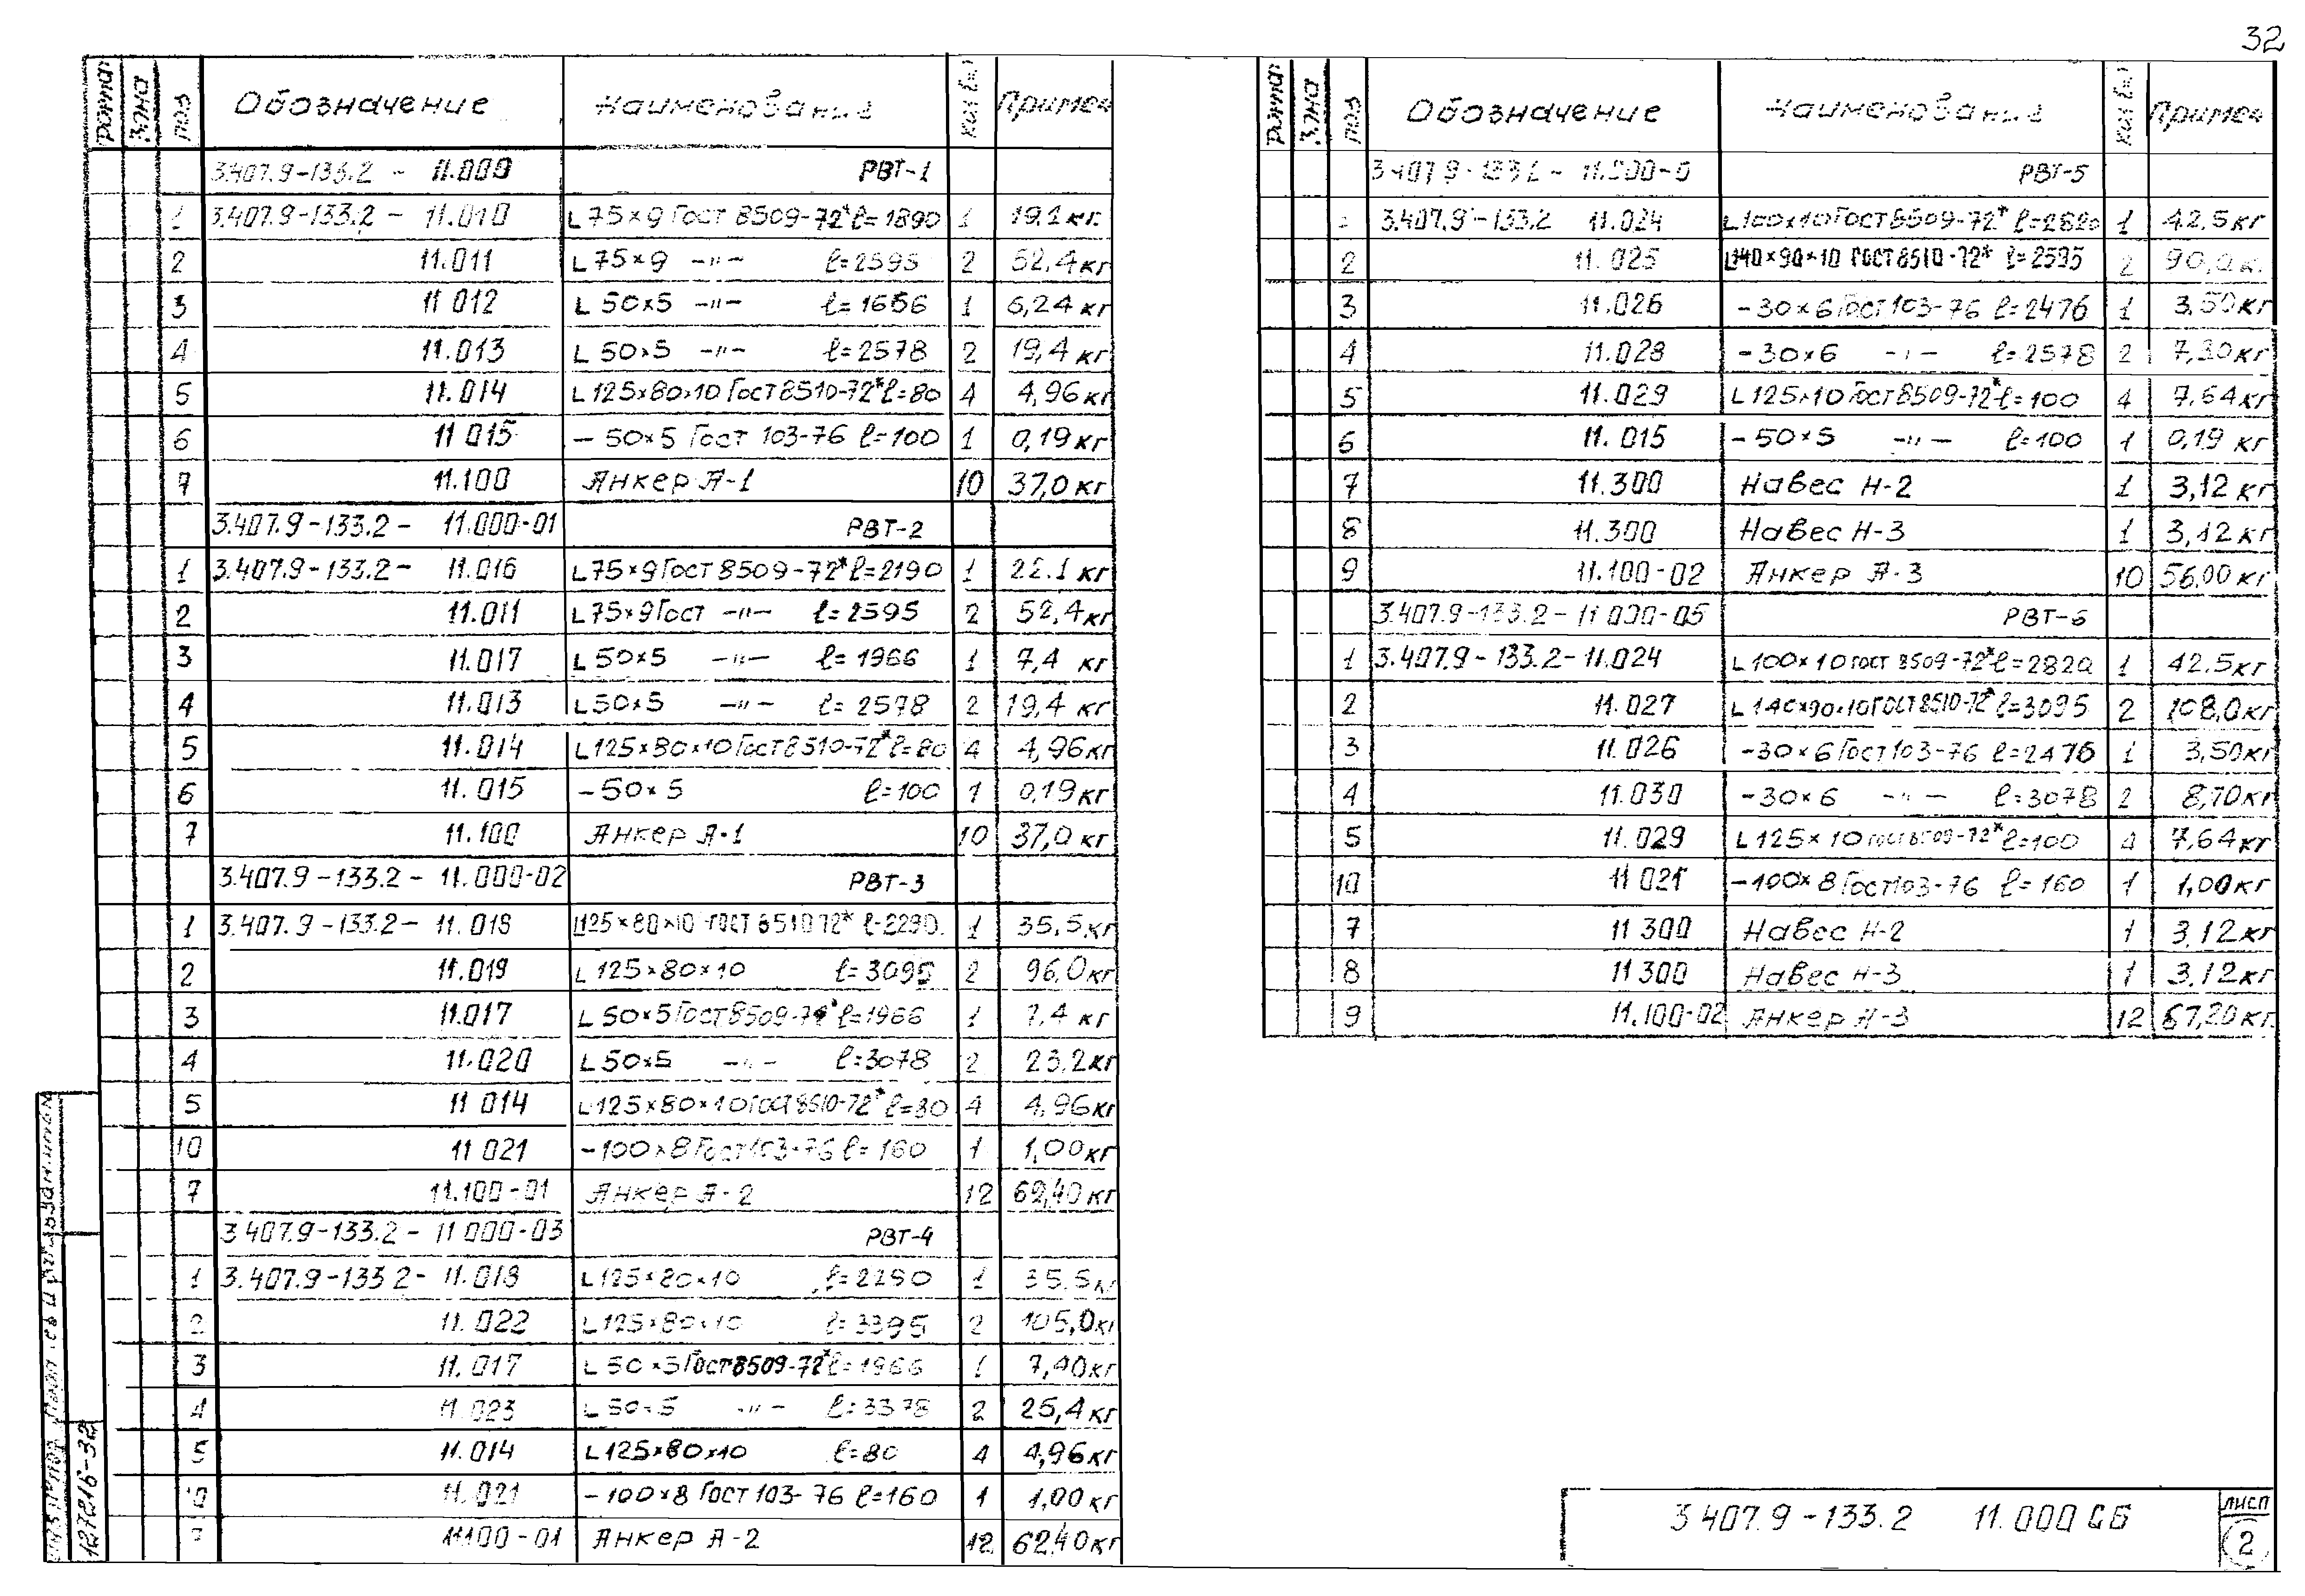 32
Формат Зона Поз Обозначение Наименование Кол Примеч
3.407.9-133.2 - 11.000 РВТ-1
1 3.407.9-133.2 - 11.010 L 75×9 Гост 8509-72* ℓ=1890 1 19,1 кг.
2 11.011 L 75×9 -"- ℓ=2595 2 52,4 кг
3 11 012 L 50×5 -"- ℓ=1666 1 6,24 кг
4 11.013 L 50×5 -"- ℓ=2578 2 19,4 кг
5 11.014 L 125×80×10 Гост 8510-72* ℓ=80 4 4,96 кг
6 11 015 - 50×5 Гост 103-76 ℓ=100 1 0,19 кг
7 11.100 Анкер А-1 10 37,0 кг
3.407.9-133.2 - 11.000-01 РВТ-2
1 3.407.9-133.2 - 11.016 L 75×9 Гост 8509-72* ℓ=2190 1 22.1 кг
2 11.011 L 75×9 Гост -"- ℓ=2595 2 52,4 кг
3 11.017 L 50×5 -"- ℓ=1966 1 7,4 кг
4 11.013 L 50×5 -"- ℓ=2578 2 19,4 кг
5 11.014 L 125×80×10 Гост 8510-72* ℓ=80 4 4,96 кг
6 11.015 - 50×5 ℓ=100 1 0,19 кг
7 11.100 Анкер А-1 10 37,0 кг
3.407.9-133.2 - 11.000-02 РВТ-3
1 3.407.9-133.2 - 11.018 L125×80×10 ГОСТ 8510 72* ℓ=2290. 1 35,5 кг
2 11.019 L 125×80×10 ℓ=3095 2 96,0 кг
3 11.017 L 50×5 ГОСТ 8509-72* ℓ=1966 1 7,4 кг
4 11.020 L 50×5 -"- ℓ=3078 2 23,2 кг
5 11 014 L 125×80×10 Гост 8510-72* ℓ=80 4 4,96 кг
10 11 021 - 100×8 Гост 103-76 ℓ=160 1 1,00 кг
7 11.100-01 Анкер А-2 12 62,40 кг
3.407.9-133.2 - 11 000-03 РВТ-4
1 3.407.9-133 2 - 11.018 L 125×80×10 ℓ=2290 1 35.5 кг
2 11.022 L 125×80×10 ℓ=3395 2 105,0 кг
3 11.017 L 50×5 Гост 8509-72* ℓ=1966 1 7,40 кг
4 11.023 L 50×5 -"- ℓ=3378 2 25,4 кг
5 11.014 L 125×80×10 ℓ=80 4 4,96 кг
10 11.021 - 100×8 ГОСТ 103-76 ℓ=160 1 1,00 кг
7 11100-01 Анкер А-2 12 62,40 кг
127216-32
Формат Зона Поз Обозначение Наименование Кол Примеч
РВТ-5
3.407.9-133.2 11.024 L 100×10 Гост 8509-72* ℓ=2820 1 42.5 кг
2 11.025 L140×90×10 ГОСТ 8510-72* ℓ=2595 2 90,0 к.
3 11.026 - 30×6 Гост 103-76 ℓ=2476 1 3,50 кг
4 11.028 - 30×6 -"- ℓ=2578 2 7,30 кг
5 11.029 L 125×10 Гост 8509-72* ℓ=100 4 7.64 кг
6 11. 015 - 50×5 -"- ℓ=100 1 0,19 кг
7 11.300 Навес Н-2 1 3,12 кг
8 11.300 Навес Н-3 1 3,12 кг
9 11.100-02 Анкер А-3 10 56,00 кг
3.407.9-133.2 - 11 000-05 РВТ-6
1 3.407.9-133.2-11.024 L 100×10 гост 8509-72* ℓ=2820 1 42.5 кг
2 11.027 L 140×90×10 ГОСТ 8510-72* ℓ=3095 2 108,0 кг
3 11.026 - 30×6 Гост 103-76 ℓ=2476 1 3,50 кг
4 11.030 - 30×6 -"- ℓ=3078 2 8,70 кг
5 11.029 L 125×10 гост 8509-72* ℓ=100 4 7,64 кг
10 11 021 - 100×8 Гост 103-76 ℓ=160 1 1,00 кг
7 11 300 Навес Н-2 1 3,12 кг
8 11 300 Навес Н-3 1 3,12 кг
9 11.100-02 Анкер А-3 12 67,20 кг.
3 407.9-133.2 11.000 СБ
лист
2